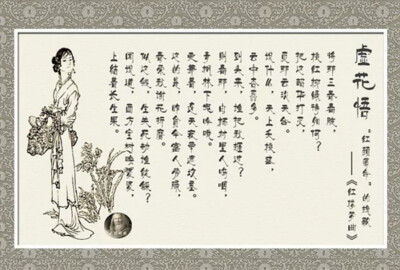 虚花悟
"红颜薄命"的挽歌
——《红楼梦曲》
将那三春看破,
桃红柳绿待如何?
把这韶华打灭,
觅那淡天
说什么,天上夭桃盛,
云中杏蕊多。
到头来,谁把秋捱过?
则看那,白杨村里人呜咽,
青枫林下鬼吟哦。
更兼着,连天衰草遮坟墓。
这的是,昨贫今富人劳碌,
春荣秋谢花折磨。
似这般,生关死劫谁能躲?
闻说道,西方宝树唤婆娑,
上结着长生果。